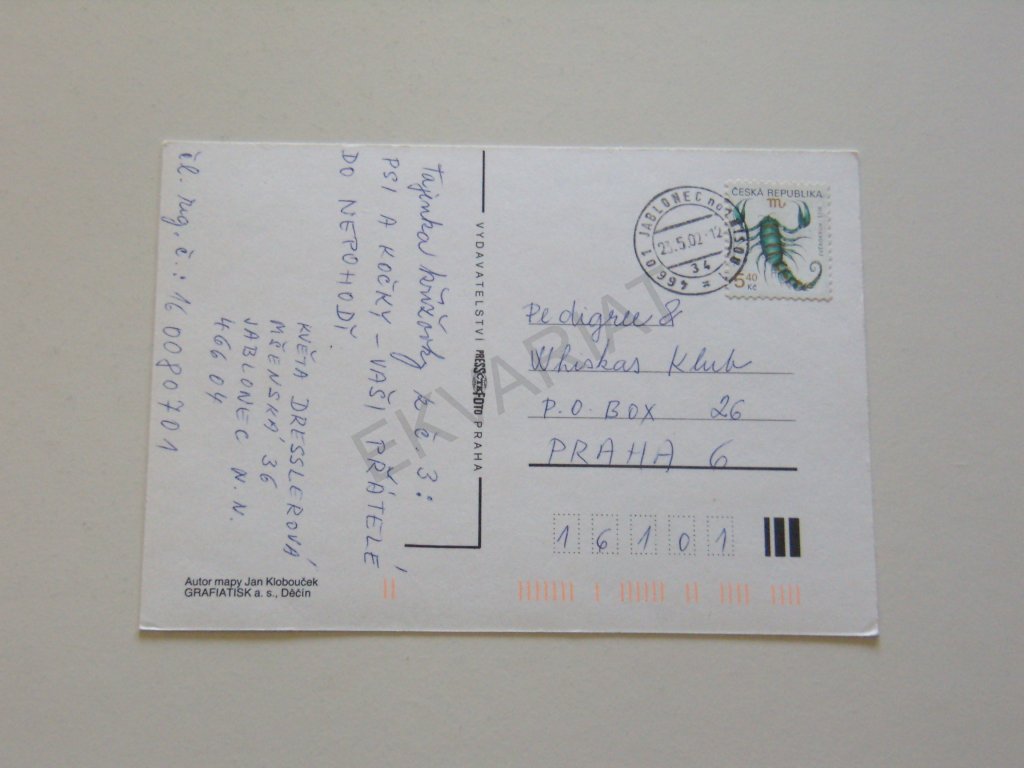 Tajenka křížovky k č. 3:
PSI A KOČKY – VAŠI PŘÁTELÉ
DO NEPOHODÍ
KVĚTA DRESSLEROVÁ
MŠENSKÁ 36
JABLONEC N. N.
466 04
čl. reg. č.: 16 0080701
Autor mapy Jan Klobouček
GRAFIATISK a. s., Děčín
VYDAVATELSTVÍ PRESSFOTO PRAHA
466 01 JABLONEC nad NISOU
23.5.02-12
34
ČESKÁ REPUBLIKA
5 40
Kč
Pedigree &
Whiskas Klub
P.O. BOX 26
PRAHA 6
1 6 1 0 1
EKVARIAT